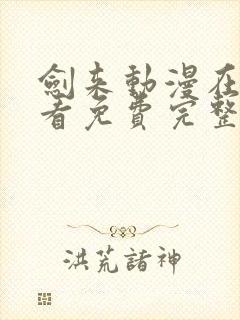 劍来動漫在
看免費完整
洪荒諸神